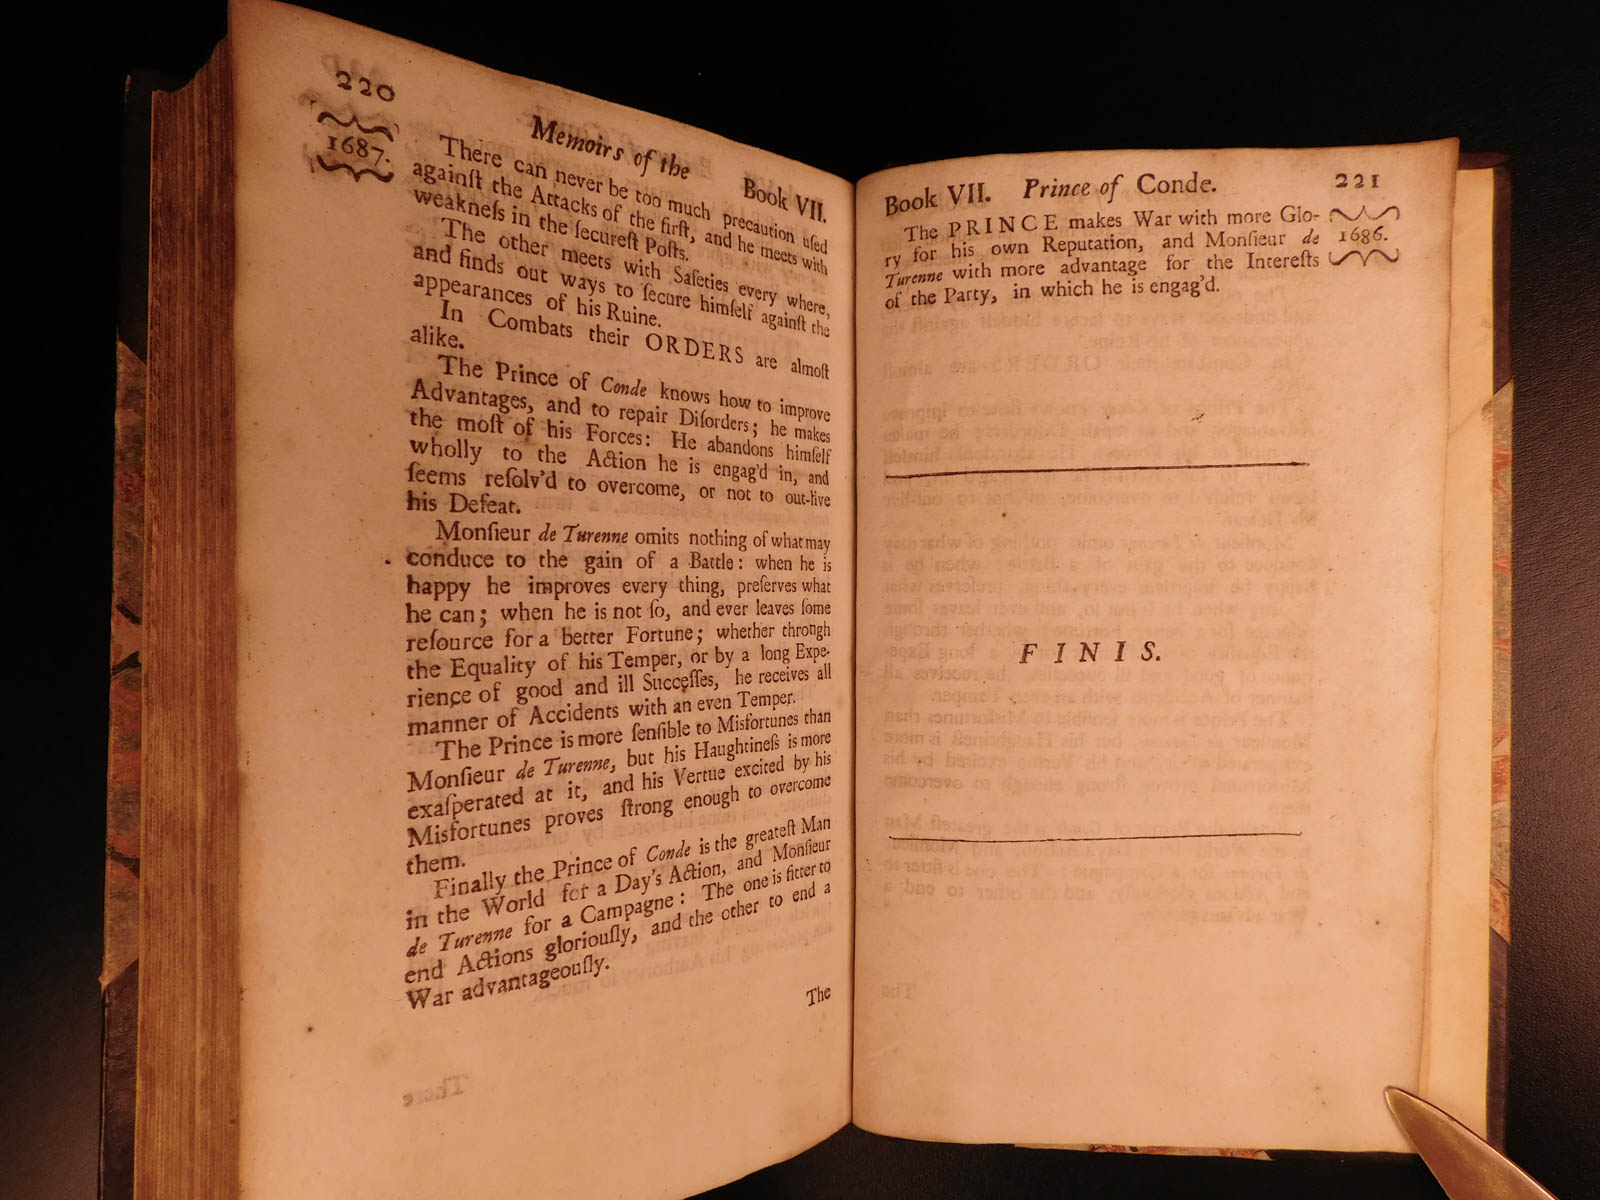 220
Memoirs of the Book VII.
1687.
There can never be too much precaution uſed
againſt the Attacks of the firſt, and he meets with
weakneſs in the ſecureſt Poſts.
The other meets with Safeties every where,
and finds out ways to ſecure himſelf againſt the
appearances of his Ruine.
In Combats their ORDERS are almoſt
alike.
The Prince of Conde knows how to improve
Advantages, and to repair Diſorders; he makes
the moſt of his Forces: He abandons himſelf
wholly to the Action he is engag'd in, and
ſeems reſolv'd to overcome, or not to out-live
his Defeat.
Monſieur de Turenne omits nothing of what may
conduce to the gain of a Battle: when he is
happy he improves every thing, preſerves what
he can; when he is not ſo, and ever leaves ſome
reſource for a better Fortune; whether through
the Equality of his Temper, or by a long Expe-
rience of good and ill Succeſſes, he receives all
manner of Accidents with an even Temper.
The Prince is more ſenſible to Misfortunes than
Monſieur de Turenne, but his Haughtineſs is more
exaſperated at it, and his Vertue excited by his
Misfortunes proves ſtrong enough to overcome
them.
Finally the Prince of Conde is the greateſt Man
in the World for a Day's Action, and Monſieur
de Turenne for a Campagne: The one is fitter to
end Actions gloriouſly, and the other to end a
War advantageouſly.
The
Book VII. Prince of Conde. 221
The PRINCE makes War with more Glo-
ry for his own Reputation, and Monſieur de
Turenne with more advantage for the Intereſts
of the Party, in which he is engag'd.
1686.
FINIS.